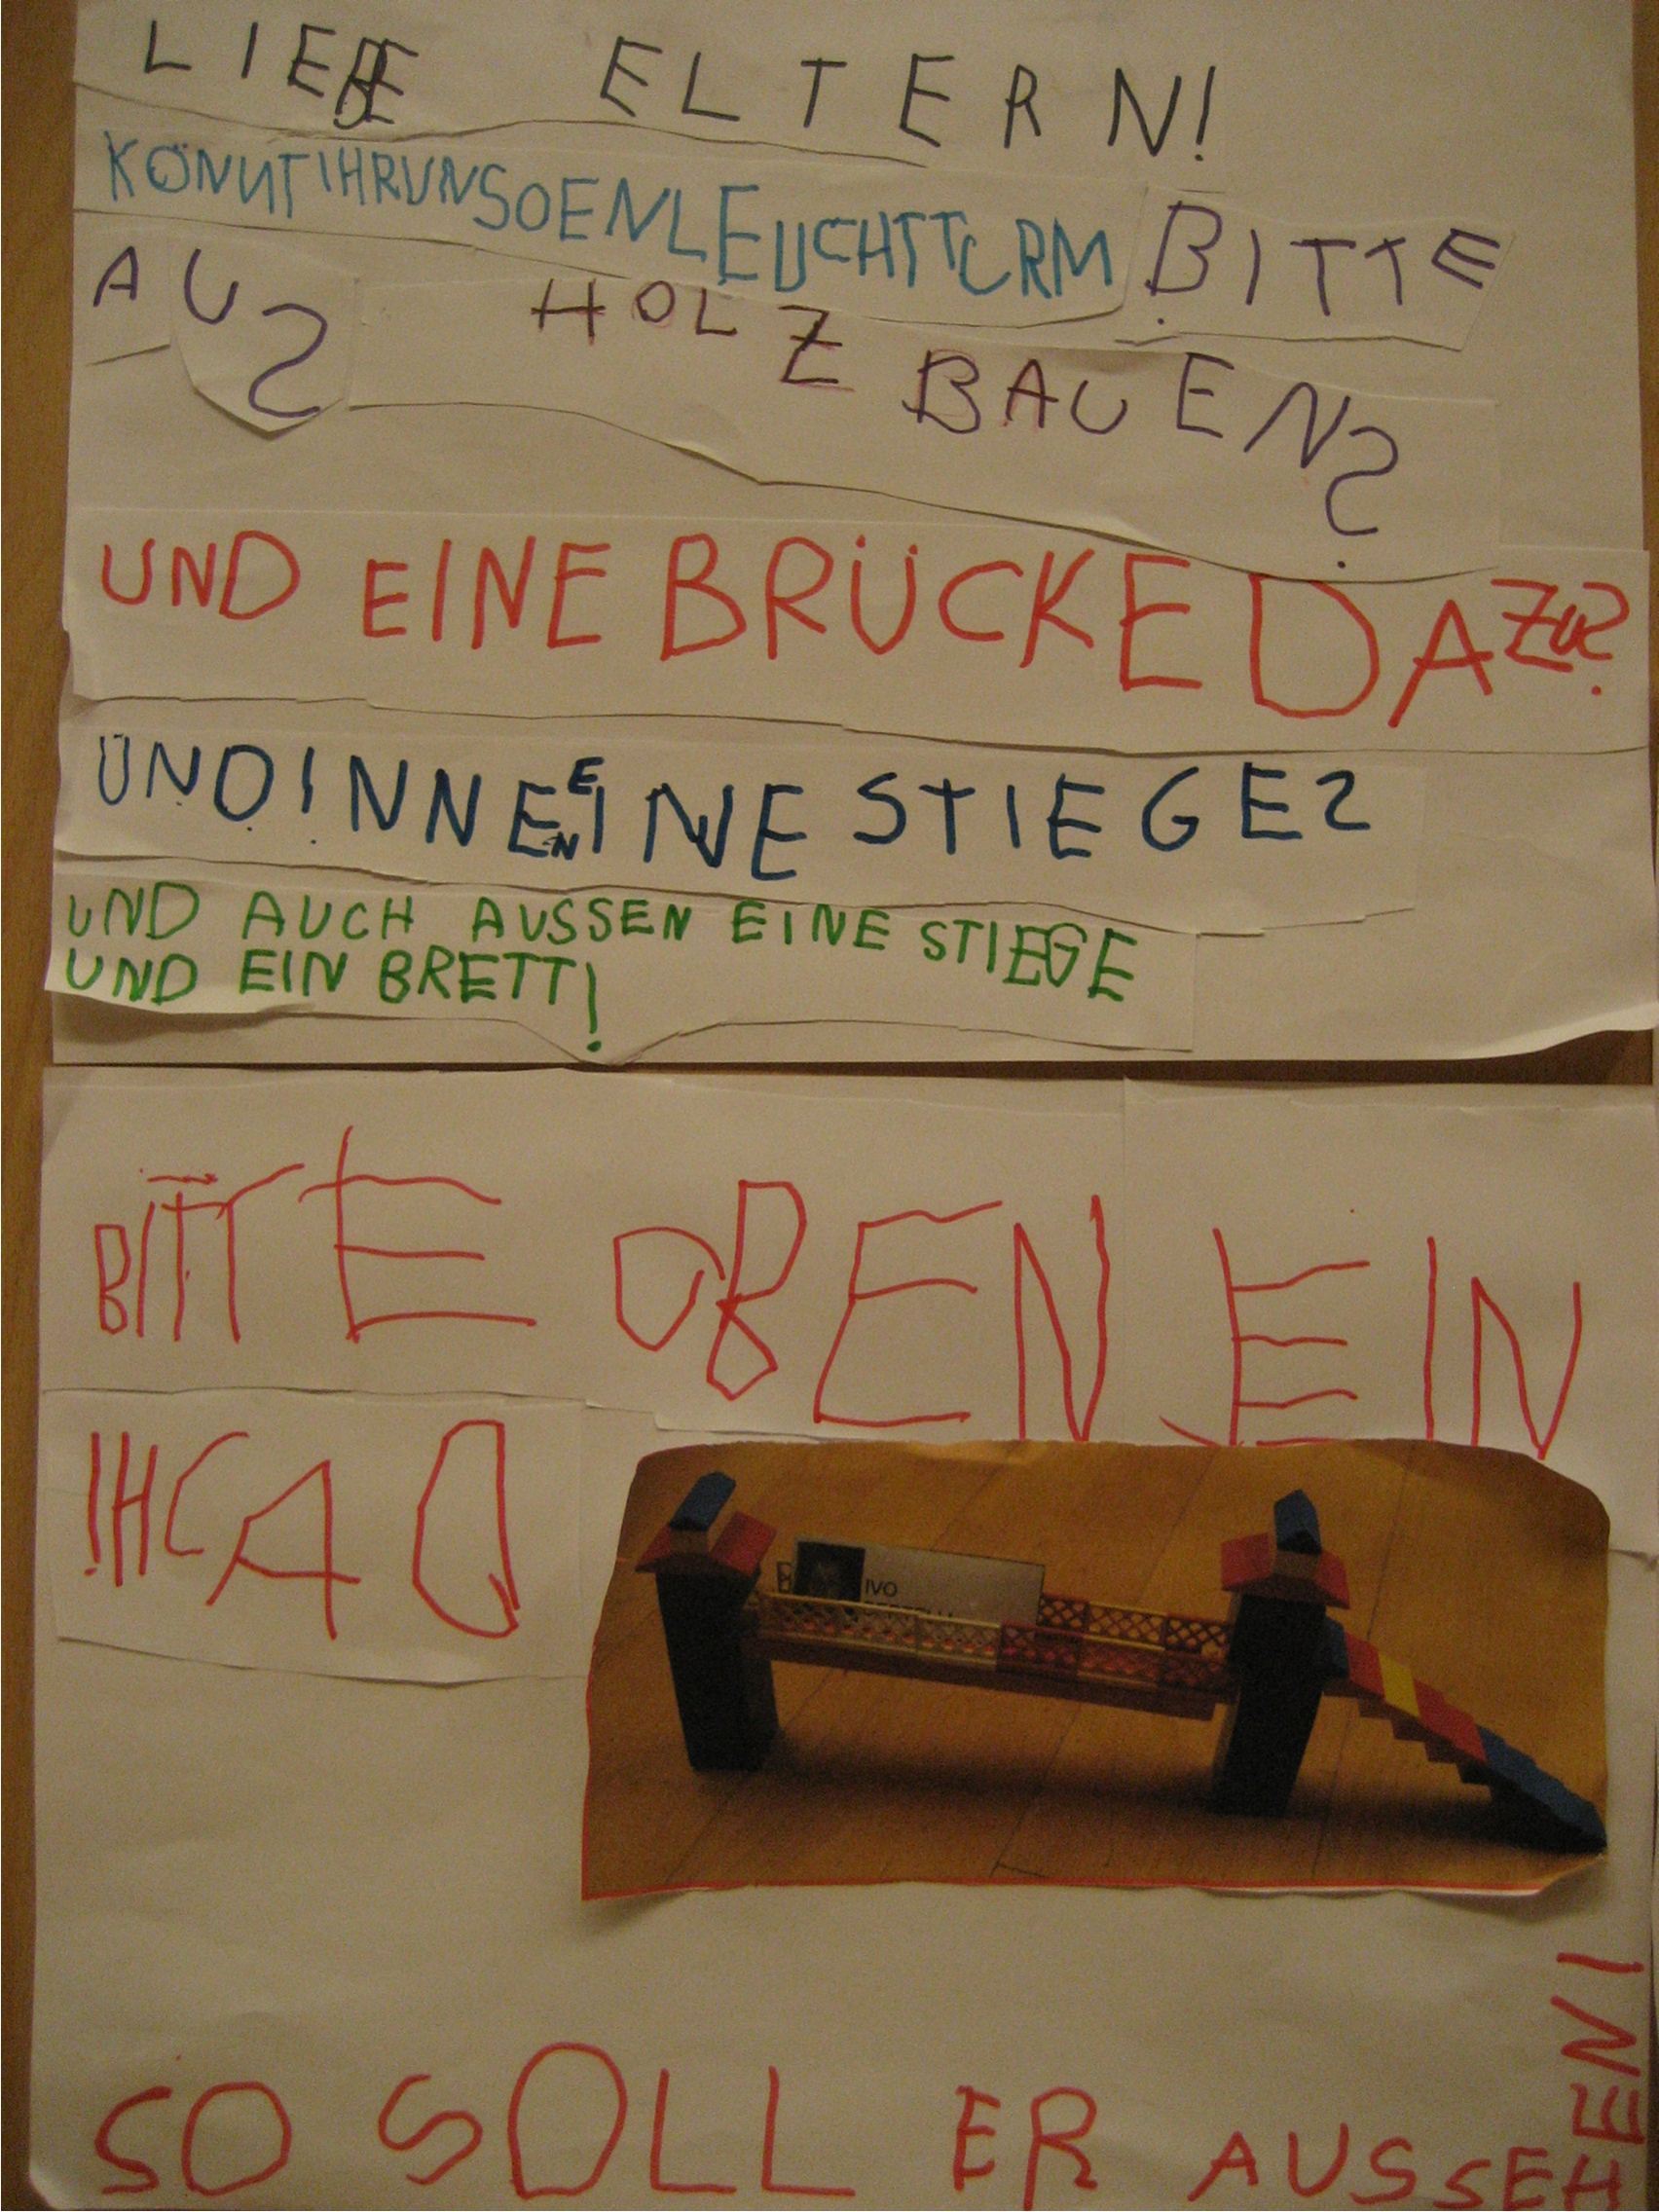 LIEBE ELTERN!
KÖNNTIHRUNSOENLEUCHTTURM BITTE
AUS HOLZ BAUEN?
UND EINE BRÜCKE DAZU?
UND INNEN EINE STIEGE?
UND AUCH AUSSEN EINE STIEGE
UND EIN BRETT!
BITTE OBEN EIN
!HCAD
IVO
SO SOLL ER AUSSEHEN!